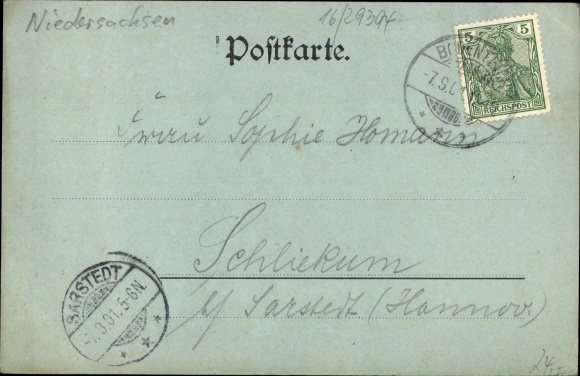 Niedersachsen
Postkarte.
5 5
REICHSPOST
Frau Sophie Homann
Schliekum
b/ Sarstedt (Hannov.)
SARSTEDT
9.01. 5-6N.